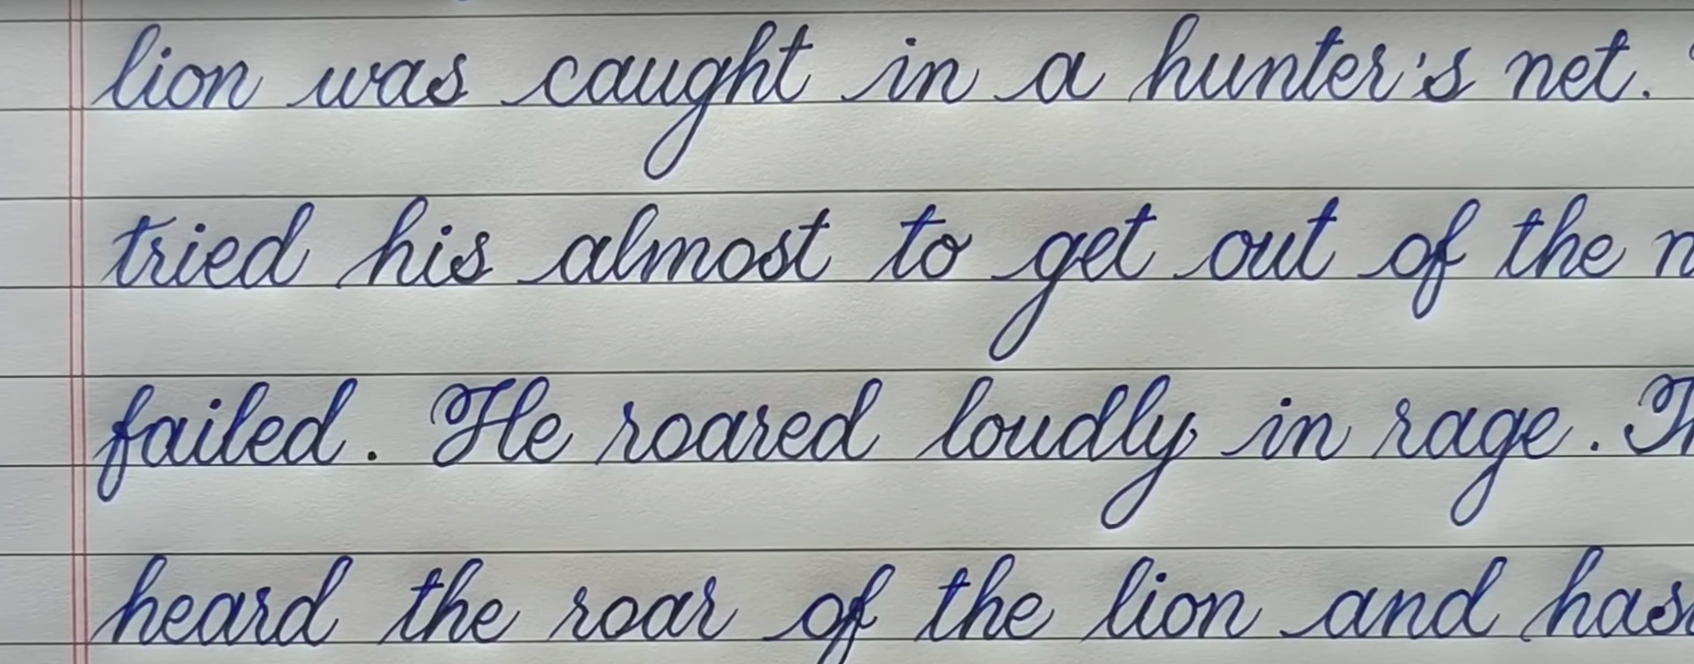 lion was caught in a hunter's net.
tried his almost to get out of the
failed. He roared loudly in rage.
heard the roar of the lion and